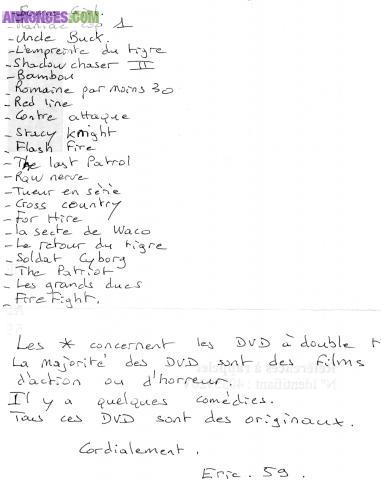 ANNONCES.COM
- Maniac Cop 1
- Uncle Buck.
- L'empreinte du tigre
- Shadow chaser II
- Bambou
Romaine par moins 30
- Red line
- Contre attaque
- Stacy knight
- Flash Fire
- The last Patrol
- Raw nerve
- Tueur en série
- Cross country
- For Hire
- La secte de Waco
- Le retour du tigre
- Soldat Cyborg
- The Patriot
- Les grands ducs
- Fire Fight.
Les * concernent les DVD à double
La majorité des DVD sont des films
d'action ou d'horreur.
Il y a quelques comédies.
Tous ces DVD sont des originaux.
Cordialement.
Eric. 59.